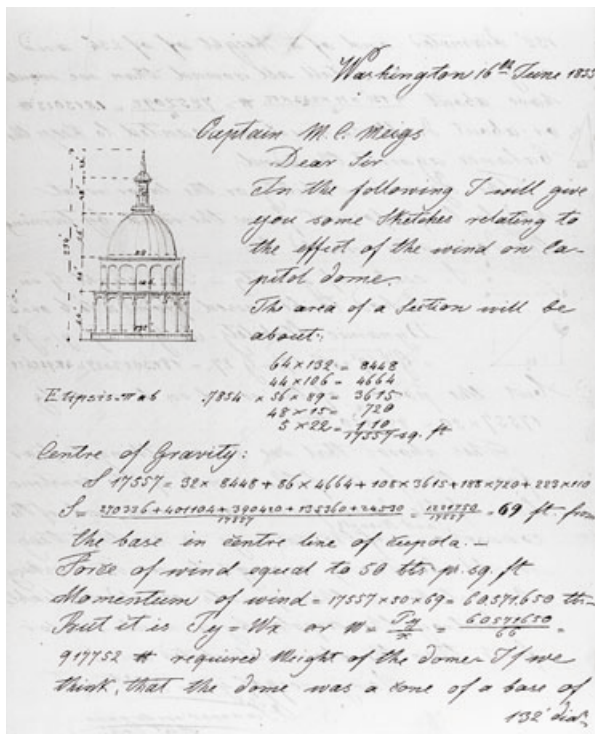 Washington 16th June 1855
Captain M. C. Meigs
Dear Sir
In the following I will give
you some Sketches relating to
the effect of the wind on Ca-
pitol dome.
The area of a Section will be
about:
64 × 132 = 8448
44 × 106 = 4664
.7854 × 56 × 89 = 3615
48 × 15 = 720
5 × 22 = 110
17557 sq. ft
Centre of Gravity:
S 17557 = 32 × 8448 + 86 × 4664 + 108 × 3615 + 188 × 720 + 223 × 110
S = 270336 + 401104 + 390420 + 135360 + 24530 = 1221750 = 69 ft. from
the base in centre line of cupola. —
Force of wind equal to 50 lbs pr. sq. ft
Momentum of wind = 17557 × 50 × 69 = 60.571.650 lbs—
But it is Ty = Wx or W = Ty/x = 60571650/66 =
917752 # required Weight of the dome. If we
think, that the dome was a cone of a base of
132' dia.